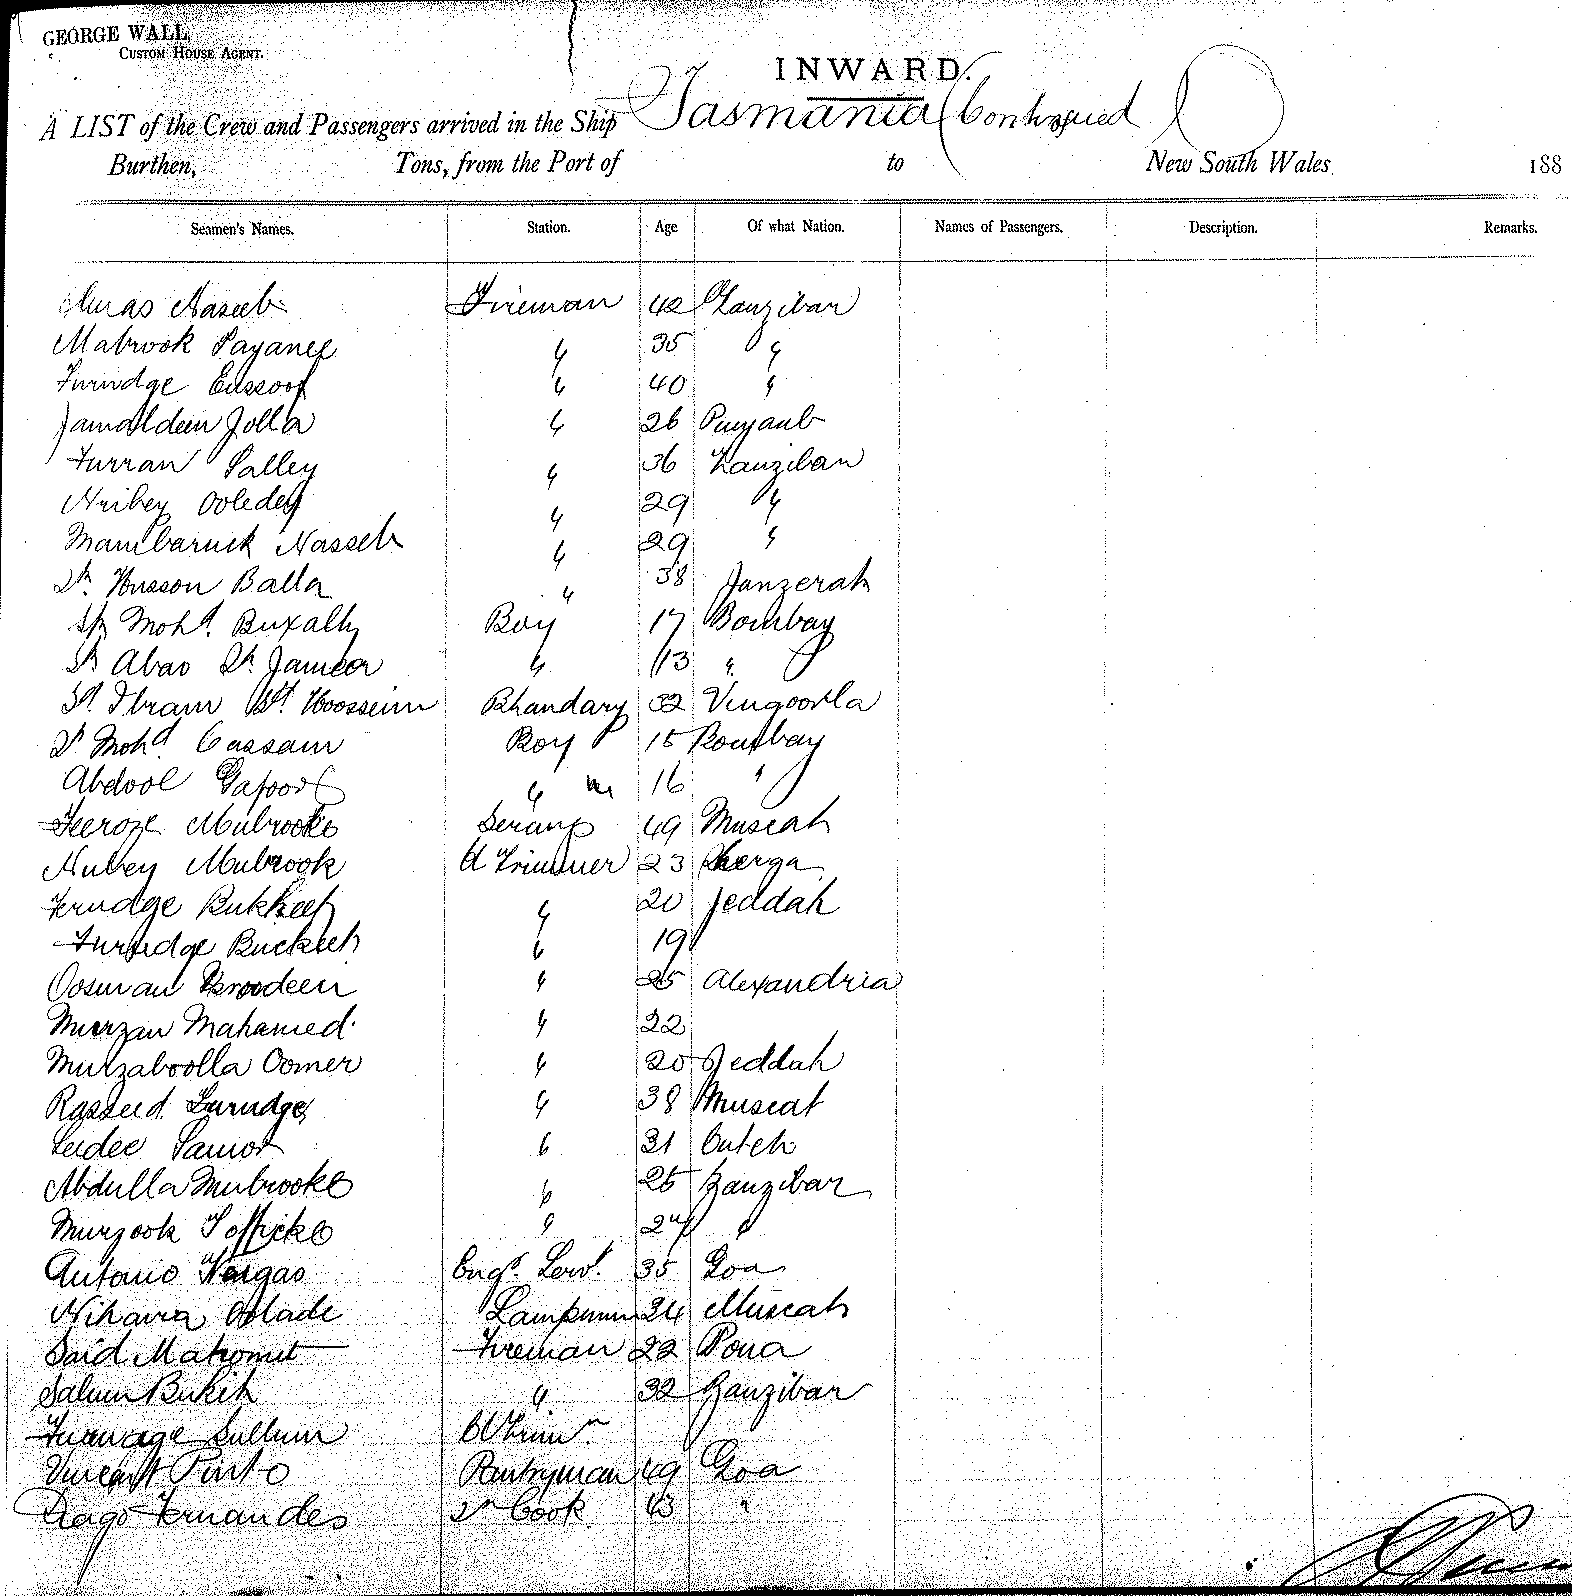 GEORGE WALL
CUSTOM HOUSE AGENT.
INWARD.
A LIST of the Crew and Passengers arrived in the Ship Tasmania (Continued)
Burthen, Tons, from the Port of to New South Wales 188
Seamen's Names. Station. Age Of what Nation. Names of Passengers. Description. Remarks.
Naseeb Fireman 42 Zanzibar
Mabrook Payanee " 35 "
Furudge Eussoof " 40 "
Jamaldeen Jolla " 26 Punjaub
Furran Salley " 36 Zanzibar
Nribey Ooledey " 29 "
Mambaruck Nasseb " 29 "
Sk. Husson Balla " 38 Janzerah
Sk Mohd. Buxally Boy 17 Bombay
Sk Abas Sk. Jameer " 13 "
Sk. Ibram Sk. Hoossein Bhandary 32 Vingoorla
Sk Mohd Cassam Boy 15 Bombay
Abdool Gafoor " 16 "
Feroze Mubrooke Serang 49 Muscat
Nubey Mubrook Trimmer 23
Ferudge Bukheet " 20 Jeddah
Furudge Buckeet " 19
Oosman " 25 Alexandria
Murzan Mahamed. " 22
Murzaboolla Oomer " 20 Jeddah
Rasseed Furudge " 38 Muscat
Seedee " 31 Cutch
Abdulla Mubrooke " 25 Zanzibar
Murzook Tofficke " 24 "
Antonio Vargas Engs. Servt. 35 Goa
Oolade Lampman 34 Muscat
Said Mahomet Fireman 22 Pona
Salum Bukit " 32 Zanzibar
Furudge Sullum C Trimr.
Vincent Pinto Pantryman 49 Goa
Diago Fernandes 2n Cook 43 "